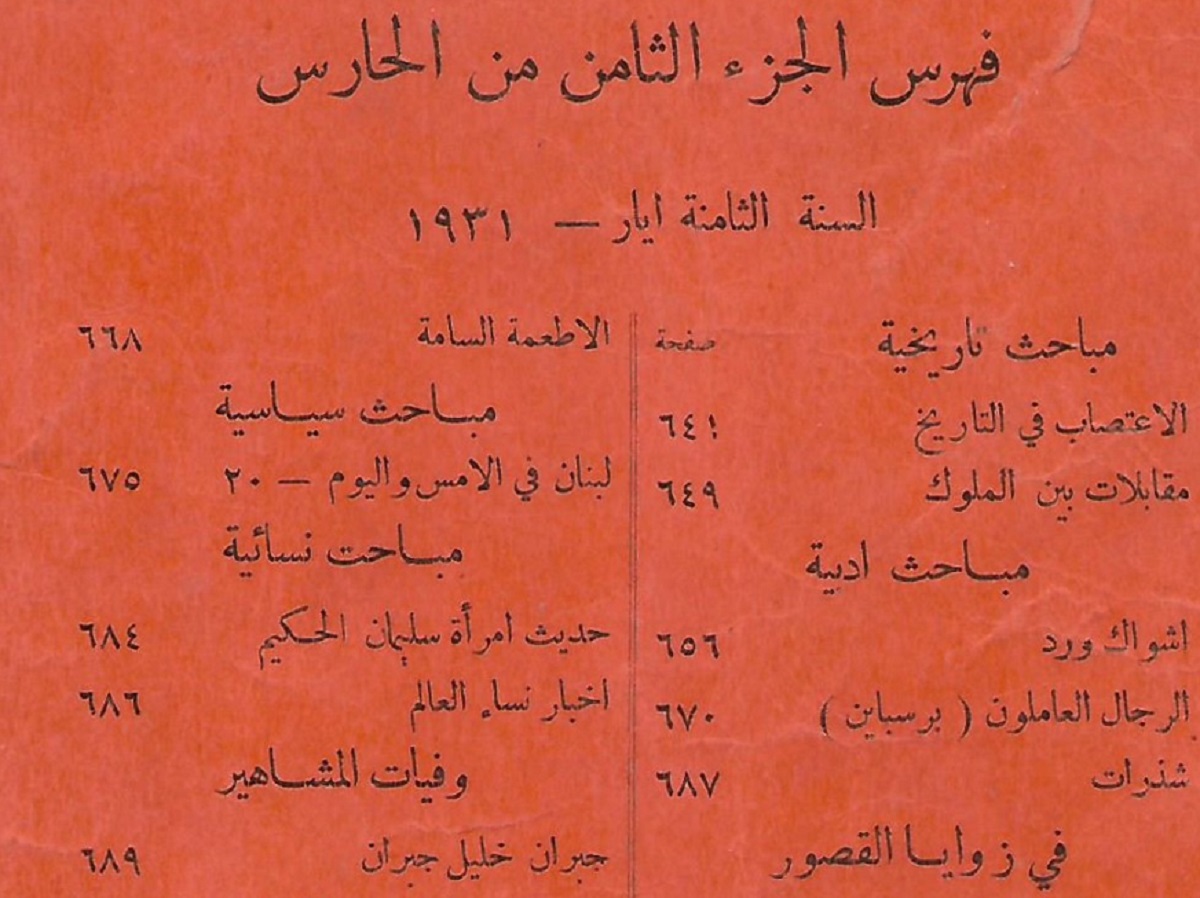 فهرس الجزء الثامن من الحارس
السنة الثامنة ايار — ١٩٣١
مباحث تاريخية صفحة
الاعتصاب في التاريخ ٦٤١
مقابلات بين الملوك ٦٤٩
مباحث ادبية
اشواك ورد ٦٥٦
الرجال العاملون ( برسباين ) ٦٧٠
شذرات ٦٨٧
في زوايا القصور
الاطعمة السامة ٦٦٨
مباحث سياسية
لبنان في الامس واليوم — ٢٠ ٦٧٥
مباحت نسائية
حديث امرأة سليمان الحكيم ٦٨٤
اخبار نساء العالم ٦٨٦
وفيات المشاهير
جبران خليل جبران ٦٨٩